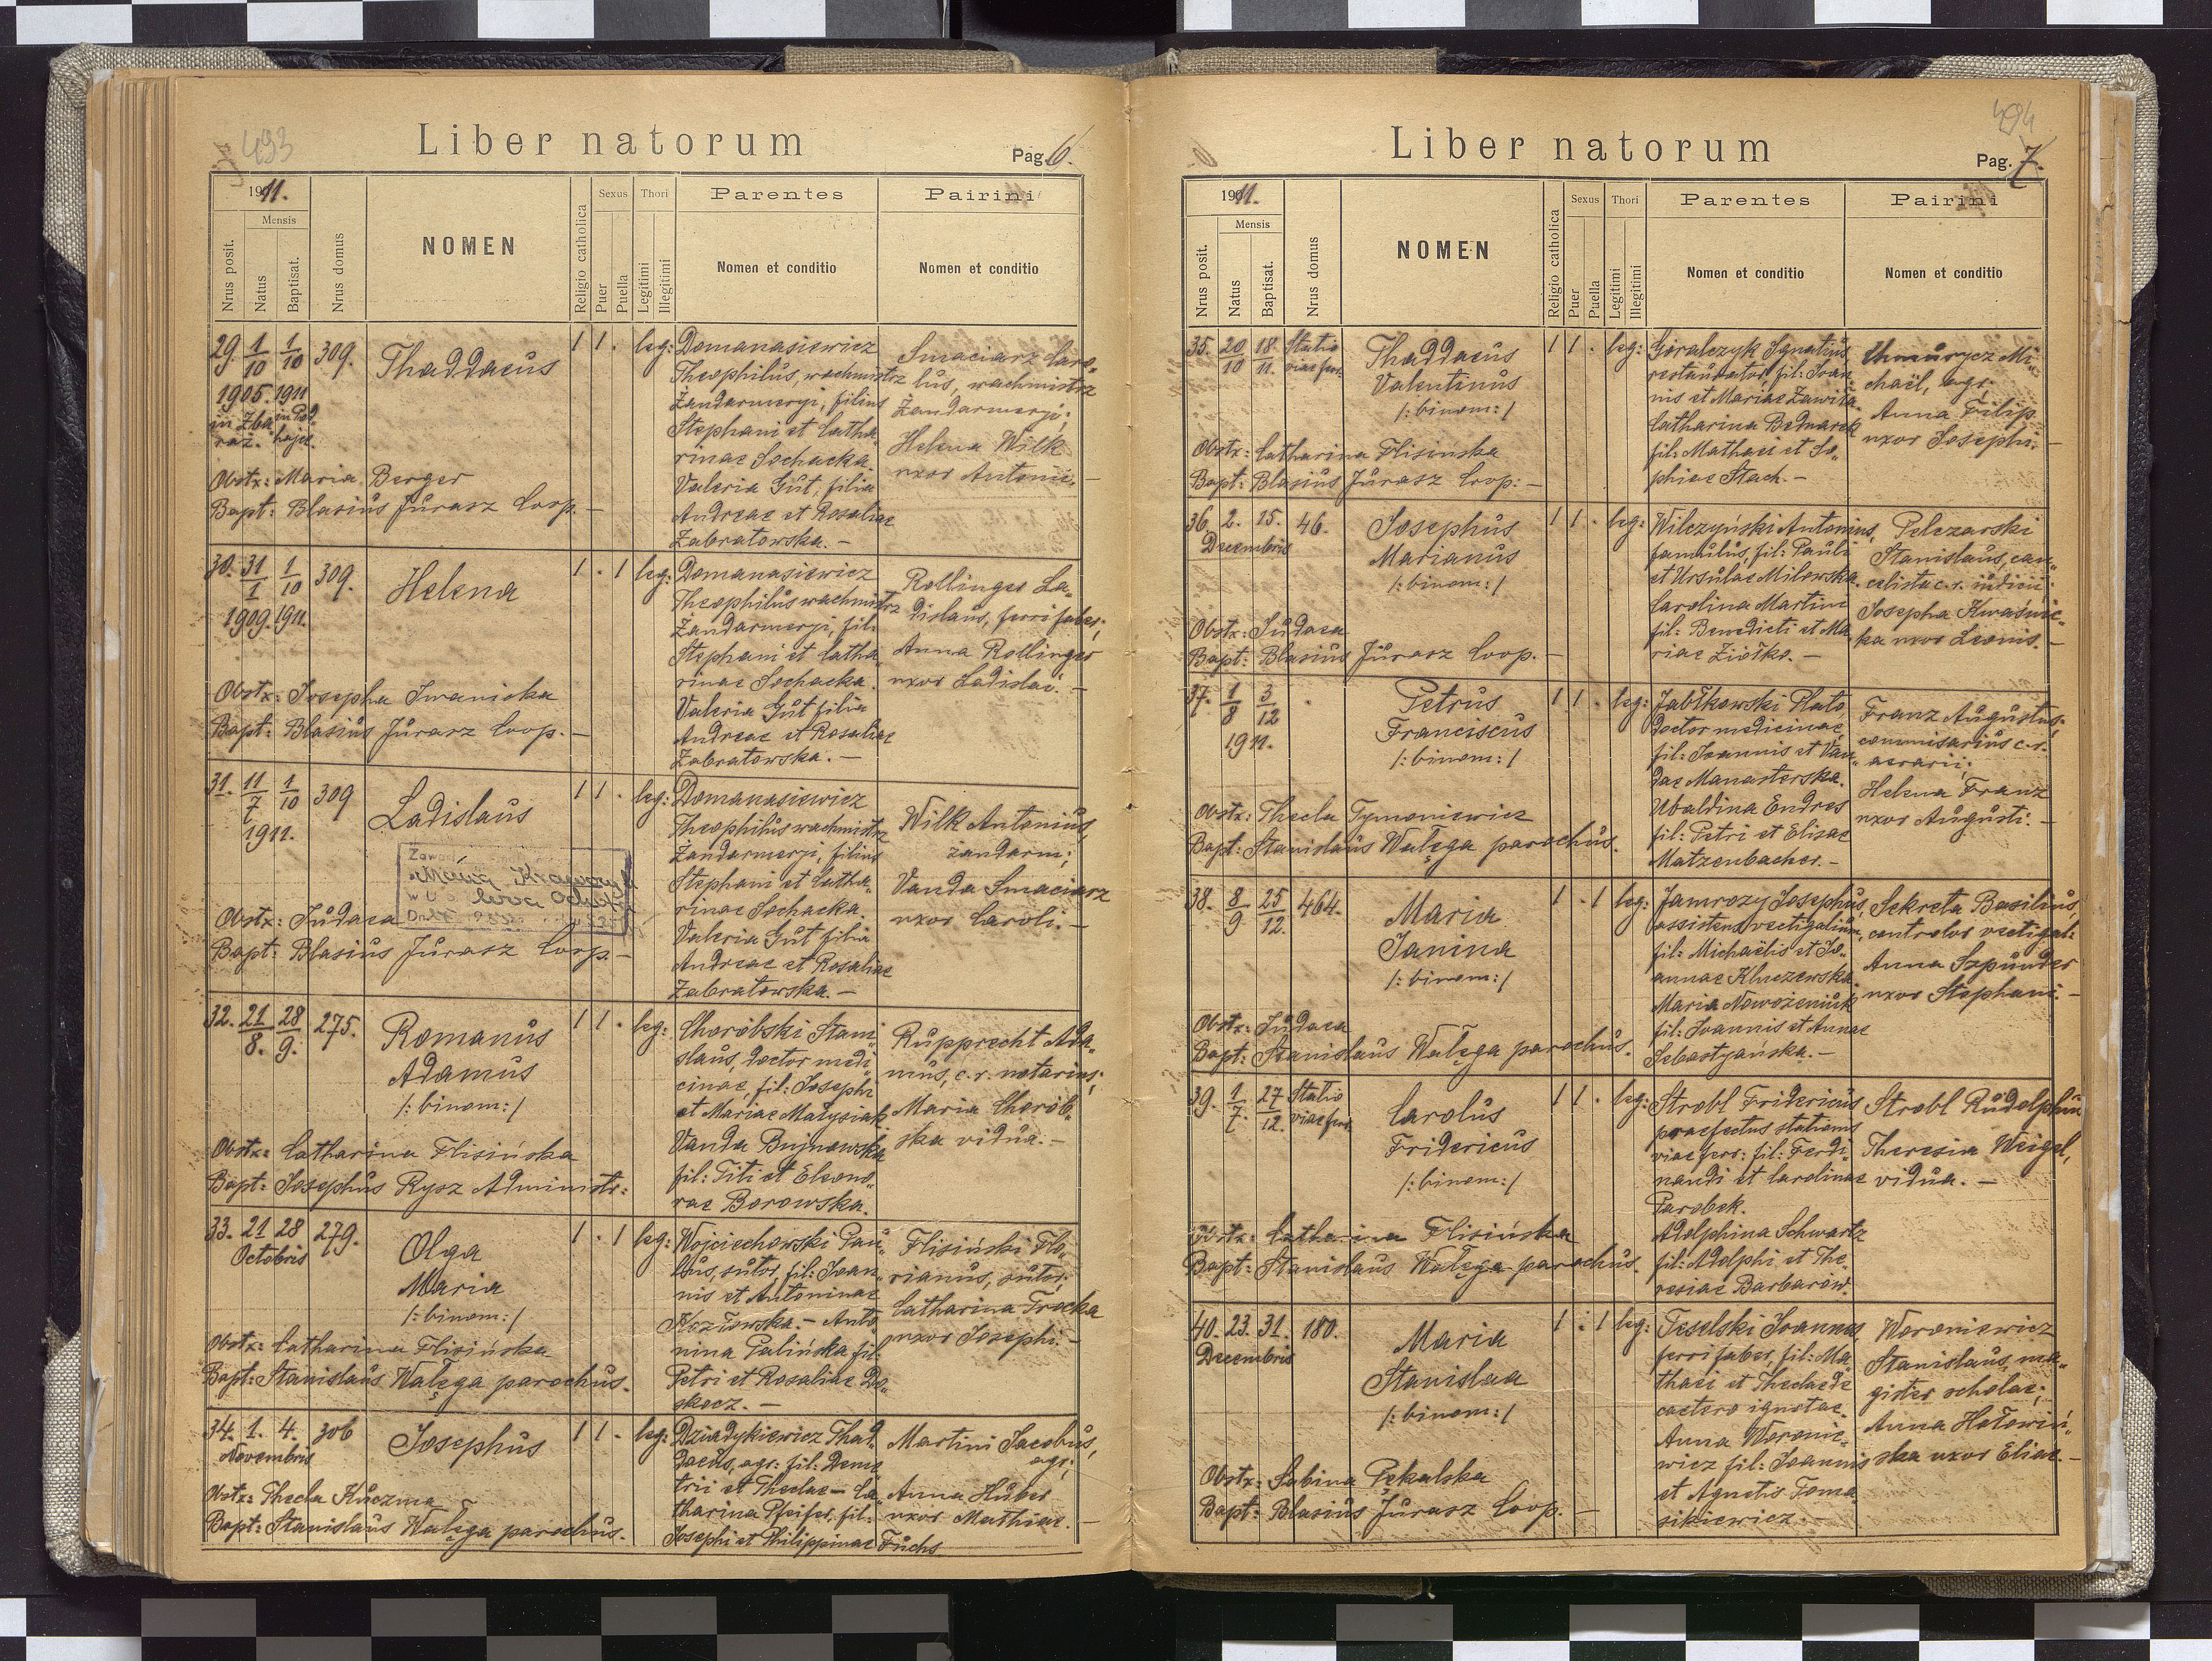 493
Liber natorum
Pag. 6.
1911.
Nrus posit.
Mensis
Natus
Baptisat.
Nrus domus
NOMEN
Religio catholica
Sexus
Puer
Puella
Thori
Legitimi
Illegitimi
Parentes
Nomen et conditio
Pairini
Nomen et conditio
29. 1/10 1/10 309.
1905. 1911
in Zba in Pod
raż. hajce.
Thaddaeus
1 1 . leg:
Domanasiewicz
Theophilus, wachmistrz
Żandarmerji, filius
Stephani et Catha„
rinae Sochacka.
Valeria Gut, filia
Andreae et Rosaliae
Zabratowska. —
Smaciarz Caro„
lus, wachmistrz
Żandarmerji;
Helena Wilk
uxor Antonii. —
Obstx: Maria Berger
Bapt: Blasius Jurasz Coop. —
30. 31/1 1/10 309.
1909. 1911.
Helena
1 . 1 leg:
Domanasiewicz
Theophilus wachmistrz
Żandarmerji, fil:
Stephani et Catha„
rinae Sochacka.
Valeria Gut filia
Andreae et Rosaliae
Zabratowska. —
Rollinger La„
dislaus, ferri faber;
Anna Rollinger
uxor Ladislai. —
Obstx: Josepha Iwanicka
Bapt: Blasius Jurasz Coop. —
31. 11/7 1/10 309
1911.
Ladislaus
1 1 . leg:
Domanasiewicz
Theophilus wachmistrz
Żandarmerji, filius
Stephani et Catha„
rinae Sochacka.
Valeria Gut filia
Andreae et Rosaliae
Zabratowska. —
Wilk Antonius,
żandarm;
Vanda Smaciarz
uxor Caroli. —
Obstx: Judaea
Bapt: Blasius Jurasz Coop. —
32. 21/8. 28/9. 275.
Romanus
Adamus
/: binom: /
1 1 . leg:
Chorobski Stani„
slaus, doctor medi„
cinae, fil: Josephi
et Mariae Matysiak
Vanda Bujnowska
fil: Titi et Eleono„
rae Borowska.
Rupprecht Ada„
mus, c. r. notarius;
Maria Chorob„
ska vidua. —
Obstx: Catharina Flisińska
Bapt: Josephus Rysz Administr:
33. 21 28 279.
Octobris
Olga
Maria
/: binom: /
1 . 1 leg:
Wojciechowski Pau„
lus, sutor, fil: Joan„
nis et Antoninae
Kozłowska. — Anto
nina Palińska fil:
Petri et Rosaliae Do„
skocz. —
Flisiński Flo„
rianus, sutor;
Catharina Trocka
uxor Josephi. —
Obstx: Catharina Flisińska
Bapt: Stanislaus Wałęga parochus.
34. 1. 4. 306
Novembris
Josephus
1 1 . leg:
Dziadykiewicz Thad„
daeus, agr: fil: Deme
trii et Theclae — Ca„
tharina Pfeifer, fil:
Josephi et Philippinae Fuchs
Martini Jacobus,
agr;
Anna Huber
uxor Mathiae. —
Obstx: Thecla Kuczma
Bapt: Stanislaus Wałęga parochus.
494
Liber natorum
Pag. 7.
1911.
Nrus posit.
Mensis
Natus
Baptisat.
Nrus domus
NOMEN
Religio catholica
Sexus
Puer
Puella
Thori
Legitimi
Illegitimi
Parentes
Nomen et conditio
Pairini
Nomen et conditio
35. 20/10 18./11. Statio
viae ferr.
Thaddaeus
Valentinus
/: binom: /
1 1 . leg:
Góralczyk Ignatius
restaurator, fil: Joan„
nis et Mariae Zawiła.
Catharina Bednarek
fil: Mathaei et So„
phiae Stach. —
chaël, agr:
Anna Filip
uxor Josephi. —
Obstx: Catharina Flisińska
Bapt: Blasius Jurasz Coop: —
36. 2. 15. 46.
Decembris
Josephus
Marianus
/: binom: /
1 1 . leg:
Wilczyński Antonius,
famulus, fil: Pauli
et Ursulae Milewska.
Carolina Martini
fil: Benedicti et Ma„
riae Ziółko. —
Pelczarski
Stanislaus, can„
celista c. r. iudicii;
Josepha Kwaśnic„
ka uxor Leonis. —
Obstx: Judaea
Bapt: Blasius Jurasz Coop. —
37. 1/8 3/12 .
1911.
Petrus
Franciscus
/: binom: /
1 1 . leg:
Jabłkowski Plato,
doctor medicinae,
fil: Joannis et Van„
dae Manasterska.
Ubaldina Endres
fil: Petri et Elisae
Matzenbacher. —
Franz Augustus,
commisarius c. r.
aerarii;
Helena Franz
uxor Augusti. —
Obstx: Thecla Tymoniewicz
Bapt: Stanislaus Wałęga parochus.
38. 8/9 25/12. 464.
Maria
Janina
/: binom: /
1 . 1 leg:
Jamrozy Josephus
assistens vectigalium,
fil: Michaëlis et Jo„
annae Kluczewska.
Maria Nowożeniuk
fil: Joannis et Annae
Sebastyańska. —
Sekreta Basilius,
controlor vectigal:
Anna Szpunder
uxor Stephani. —
Obstx: Judaea
Bapt: Stanislaus Wałęga parochus.
39. 1/7. 27/12. Statio
viae ferr.
Carolus
Fridericus
/: binom: /
1 1 . leg:
Strobl Fridericus
praefectus stationis
viae ferr: fil: Ferdi„
nandi et Carolinae
Parobek.
Adolphina Schwartz
fil: Adolphi et The„
resiae Barbarow.
Strobl Rudolphus
Theresia Weigel,
vidua. —
Obstx: Catharina Flisińska
Bapt: Stanislaus Wałęga parochus.
40. 23. 31. 180.
Decembris
Maria
Stanislaa
/: binom: /
1 . 1 leg:
Teselski Joannes
ferri faber, fil: Ma„
thaei et Theclae de
caetero ignotae.
Anna Woronie„
wicz fil: Joannis
et Agnetis Toma„
sikiewicz. —
Woroniewicz
Stanislaus, ma„
gister scholae;
Anna Hołowiń„
ska uxor Eliae. —
Obstx: Sabina Pękalska
Bapt: Blasius Jurasz Coop. —